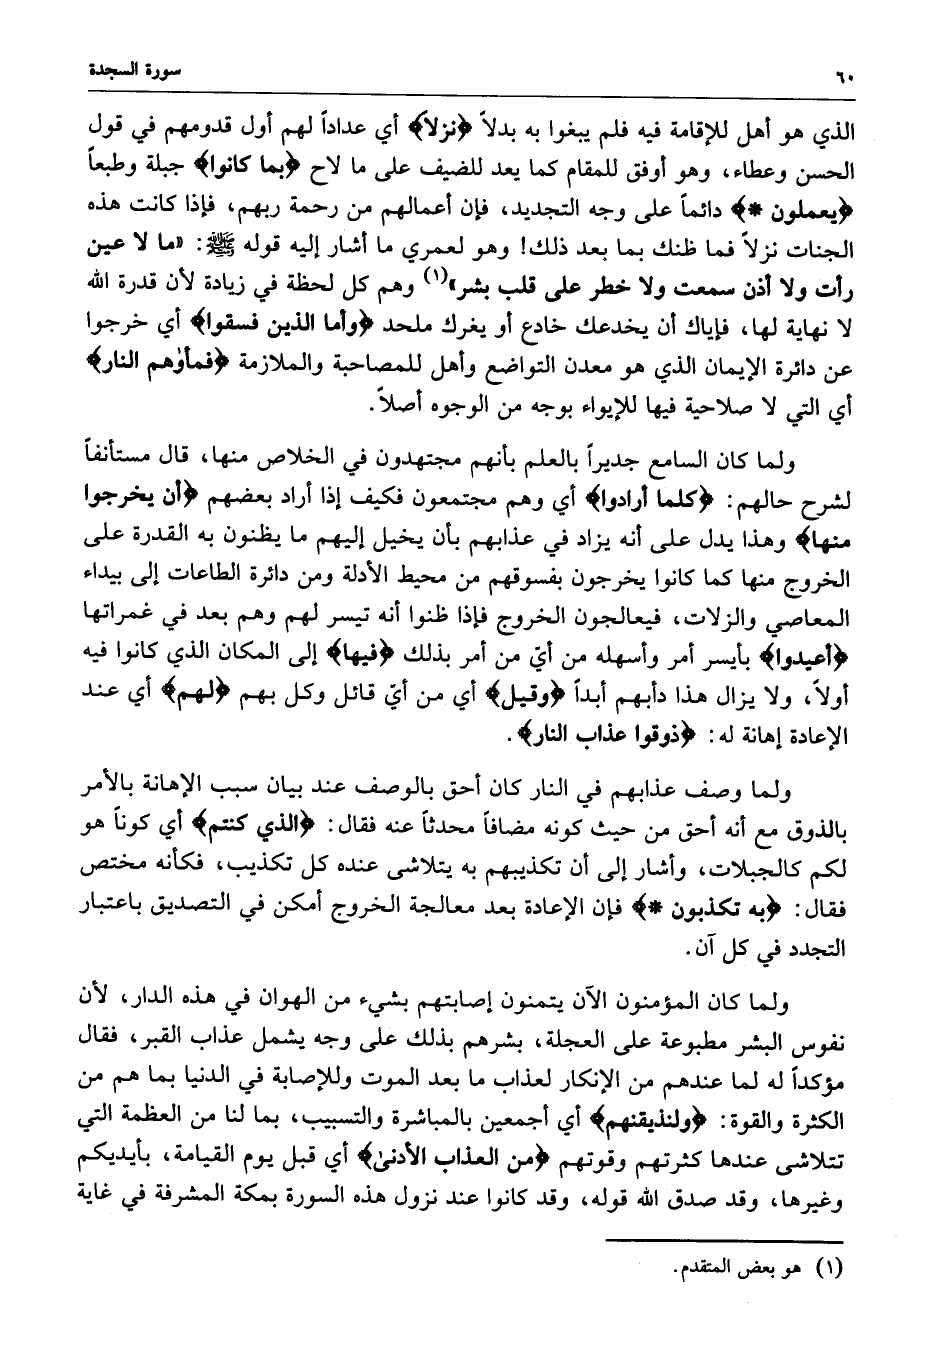 ٦٠
سورة السجدة
الذي هو أهل للإقامة فيه فلم يبغوا به بدلاً ﴿نزلاً﴾ أي عداداً لهم أول قدومهم في قول
الحسن وعطاء، وهو أوفق للمقام كما يعد للضيف على ما لاح ﴿بما كانوا﴾ جبلة وطبعاً
﴿يعملون *﴾ دائماً على وجه التجديد، فإن أعمالهم من رحمة ربهم، فإذا كانت هذه
الجنات نزلاً فما ظنك بما بعد ذلك! وهو لعمري ما أشار إليه قوله ﷺ: «ما لا عين
رأت ولا أذن سمعت ولا خطر على قلب بشر»(١) وهم كل لحظة في زيادة لأن قدرة الله
لا نهاية لها، فإياك أن يخدعك خادع أو يغرك ملحد ﴿وأما الذين فسقوا﴾ أي خرجوا
عن دائرة الإيمان الذي هو معدن التواضع وأهل للمصاحبة والملازمة ﴿فمأوٰهم النار﴾
أي التي لا صلاحية فيها للإيواء بوجه من الوجوه أصلاً.
ولما كان السامع جديراً بالعلم بأنهم مجتهدون في الخلاص منها، قال مستأنفاً
لشرح حالهم: ﴿كلما أرادوا﴾ أي وهم مجتمعون فكيف إذا أراد بعضهم ﴿أن يخرجوا
منها﴾ وهذا يدل على أنه يزاد في عذابهم بأن يخيل إليهم ما يظنون به القدرة على
الخروج منها كما كانوا يخرجون بفسوقهم من محيط الأدلة ومن دائرة الطاعات إلى بيداء
المعاصي والزلات، فيعالجون الخروج فإذا ظنوا أنه تيسر لهم وهم بعد في غمراتها
﴿أعيدوا﴾ بأيسر أمر وأسهله من أيّ من أمر بذلك ﴿فيها﴾ إلى المكان الذي كانوا فيه
أولاً، ولا يزال هذا دأبهم أبداً ﴿وقيل﴾ أي من أيّ قائل وكل بهم ﴿لهم﴾ أي عند
الإعادة إهانة له: ﴿ذوقوا عذاب النار﴾.
ولما وصف عذابهم في النار كان أحق بالوصف عند بيان سبب الإهانة بالأمر
بالذوق مع أنه أحق من حيث كونه مضافاً محدثاً عنه فقال: ﴿الذي كنتم﴾ أي كوناً هو
لكم كالجبلات، وأشار إلى أن تكذيبهم به يتلاشى عنده كل تكذيب، فكأنه مختص
فقال: ﴿به تكذبون *﴾ فإن الإعادة بعد معالجة الخروج أمكن في التصديق باعتبار
التجدد في كل آن.
ولما كان المؤمنون الآن يتمنون إصابتهم بشيء من الهوان في هذه الدار، لأن
نفوس البشر مطبوعة على العجلة، بشرهم بذلك على وجه يشمل عذاب القبر، فقال
مؤكداً له لما عندهم من الإنكار لعذاب ما بعد الموت وللإصابة في الدنيا بما هم من
الكثرة والقوة: ﴿ولنذيقنهم﴾ أي أجمعين بالمباشرة والتسبيب، بما لنا من العظمة التي
تتلاشى عندها كثرتهم وقوتهم ﴿من العذاب الأدنىٰ﴾ أي قبل يوم القيامة، بأيديكم
وغيرها، وقد صدق الله قوله، وقد كانوا عند نزول هذه السورة بمكة المشرفة في غاية
(١) هو بعض المتقدم.